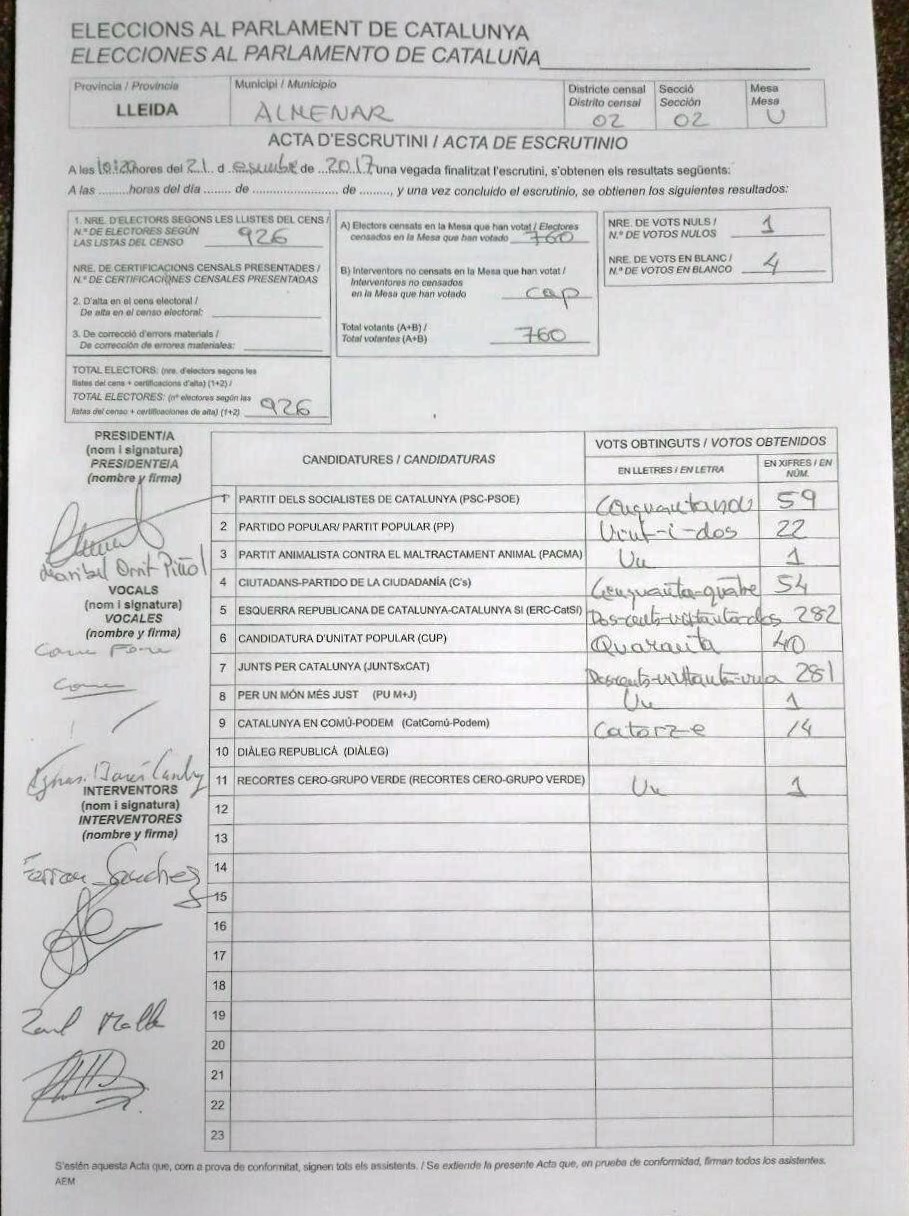 ELECCIONS AL PARLAMENT DE CATALUNYA
ELECCIONES AL PARLAMENTO DE CATALUÑA
Provincia / Provincia
LLEIDA
Municipi / Municipio
ALMENAR
Districte censal
Distrito censal
02
Secció
Sección
02
Mesa
Mesa
U
ACTA D'ESCRUTINI / ACTA DE ESCRUTINIO
A les hores del 21 d de 2017 una vegada finalitzat l'escrutini, s'obtenen els resultats següents:
A las .........horas del día ....... de ...................... de ........., y una vez concluido el escrutinio, se obtienen los siguientes resultados:
1. NRE. D'ELECTORS SEGONS LES LLISTES DEL CENS /
N.º DE ELECTORES SEGÚN
LAS LISTAS DEL CENSO 926
NRE. DE CERTIFICACIONS CENSALS PRESENTADES /
N.º DE CERTIFICACIONES CENSALES PRESENTADAS
2. D'alta en el cens electoral /
De alta en el censo electoral:
3. De correcció d'errors materials /
De corrección de errores materiales:
TOTAL ELECTORS: (nre. d'electors segons les
llistes del cens + certificacions d'alta) (1+2) /
TOTAL ELECTORES: (nº electores según las
listas del censo + certificaciones de alta) (1+2) 926
A) Electors censats en la Mesa que han votat / Electores
censados en la Mesa que han votado 760
B) Interventors no censats en la Mesa que han votat /
Interventores no censados
en la Mesa que han votado cap
Total votants (A+B) /
Total votantes (A+B) 760
NRE. DE VOTS NULS /
N.º DE VOTOS NULOS 1
NRE. DE VOTS EN BLANC /
N.º DE VOTOS EN BLANCO 4
PRESIDENT/A
(nom i signatura)
PRESIDENTE/A
(nombre y firma)
Maribel Orrit Piñol
VOCALS
(nom i signatura)
VOCALES
(nombre y firma)
INTERVENTORS
(nom i signatura)
INTERVENTORES
(nombre y firma)
Ferran Sanchez
CANDIDATURES / CANDIDATURAS
VOTS OBTINGUTS / VOTOS OBTENIDOS
EN LLETRES / EN LETRA
EN XIFRES / EN
NÚM.
1 PARTIT DELS SOCIALISTES DE CATALUNYA (PSC-PSOE) 59
2 PARTIDO POPULAR/ PARTIT POPULAR (PP) Vint-i-dos 22
3 PARTIT ANIMALISTA CONTRA EL MALTRACTAMENT ANIMAL (PACMA) Un 1
4 CIUTADANS-PARTIDO DE LA CIUDADANÍA (C's) Cinquanta-quatre 54
5 ESQUERRA REPUBLICANA DE CATALUNYA-CATALUNYA SÍ (ERC-CatSÍ) Dos-cents-vuitanta-dos 282
6 CANDIDATURA D'UNITAT POPULAR (CUP) Quaranta 40
7 JUNTS PER CATALUNYA (JUNTSxCAT) 281
8 PER UN MÓN MÉS JUST (PU M+J) Un 1
9 CATALUNYA EN COMÚ-PODEM (CatComú-Podem) Catorze 14
10 DIÀLEG REPUBLICÀ (DIÀLEG)
11 RECORTES CERO-GRUPO VERDE (RECORTES CERO-GRUPO VERDE) Un 1
12
13
14
15
16
17
18
19
20
21
22
23
S'estén aquesta Acta que, com a prova de conformitat, signen tots els assistents. / Se extiende la presente Acta que, en prueba de conformidad, firman todos los asistentes.
AEM